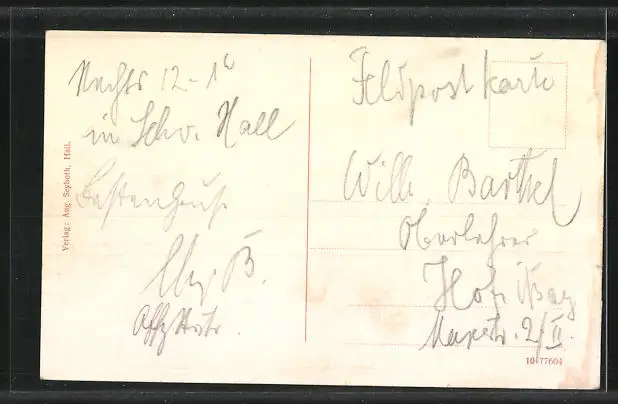 Nachts 12-1 h
in Schw. Hall
Besten Gruß
B.
Verlag: Aug. Seyboth, Hall.
Feldpostkarte
Willi Barthel
Oberlehrer
Hof i/Bay
Maxstr. 2/II.
10 77604